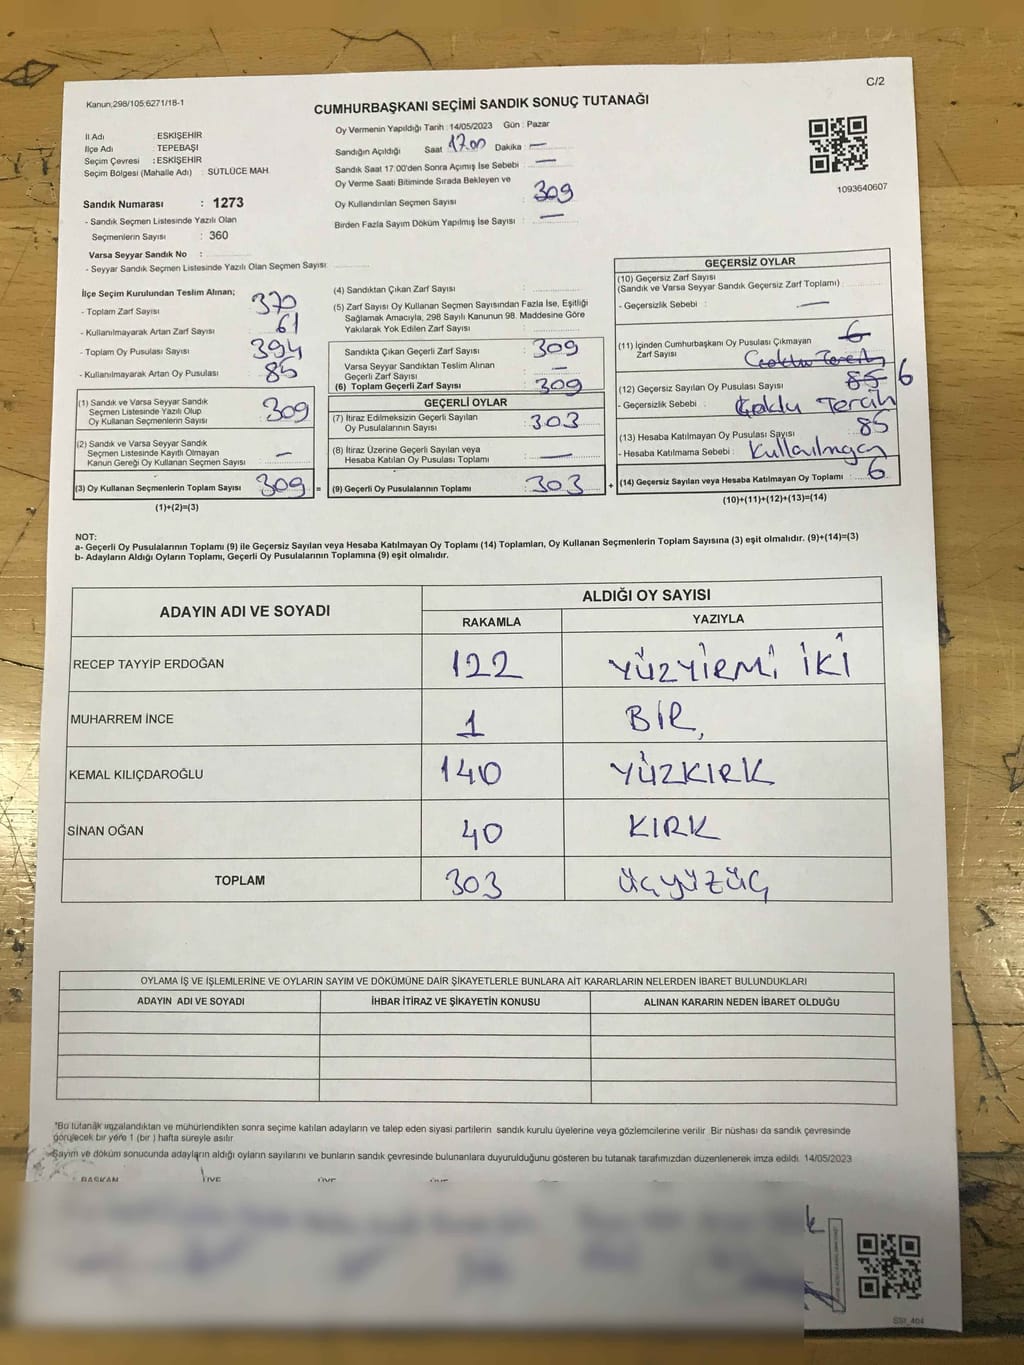 C/2
Kanun,298/105;6271/18-1
CUMHURBAŞKANI SEÇİMİ SANDIK SONUÇ TUTANAĞI
İl Adı : ESKİŞEHİR
İlçe Adı : TEPEBAŞI
Seçim Çevresi : ESKİŞEHİR
Seçim Bölgesi (Mahalle Adı) : SÜTLÜCE MAH.
Sandık Numarası : 1273
- Sandık Seçmen Listesinde Yazılı Olan
Seçmenlerin Sayısı : 360
Varsa Seyyar Sandık No :
- Seyyar Sandık Seçmen Listesinde Yazılı Olan Seçmen Sayısı:
Oy Vermenin Yapıldığı Tarih : 14/05/2023 Gün : Pazar
Sandığın Açıldığı Saat 17.00 Dakika : —
Sandık Saat 17:00'den Sonra Açımış İse Sebebi : —
Oy Verme Saati Bitiminde Sırada Bekleyen ve
Oy Kullandırılan Seçmen Sayısı : 309
Birden Fazla Sayım Döküm Yapılmış İse Sayısı : —
1093640607
İlçe Seçim Kurulundan Teslim Alınan;
- Toplam Zarf Sayısı : 370
- Kullanılmayarak Artan Zarf Sayısı : 61
- Toplam Oy Pusulası Sayısı : 394
- Kullanılmayarak Artan Oy Pusulası : 85
(1) Sandık ve Varsa Seyyar Sandık
Seçmen Listesinde Yazılı Olup
Oy Kullanan Seçmenlerin Sayısı : 309
(2) Sandık ve Varsa Seyyar Sandık
Seçmen Listesinde Kayıtlı Olmayan
Kanun Gereği Oy Kullanan Seçmen Sayısı : —
(3) Oy Kullanan Seçmenlerin Toplam Sayısı : 309 =
(1)+(2)=(3)
(4) Sandıktan Çıkan Zarf Sayısı :
(5) Zarf Sayısı Oy Kullanan Seçmen Sayısından Fazla İse, Eşitliği
Sağlamak Amacıyla, 298 Sayılı Kanunun 98. Maddesine Göre
Yakılarak Yok Edilen Zarf Sayısı :
Sandıkta Çıkan Geçerli Zarf Sayısı : 309
Varsa Seyyar Sandıktan Teslim Alınan
Geçerli Zarf Sayısı : —
(6) Toplam Geçerli Zarf Sayısı : 309
GEÇERLİ OYLAR
(7) İtiraz Edilmeksizin Geçerli Sayılan
Oy Pusulalarının Sayısı : 303
(8) İtiraz Üzerine Geçerli Sayılan veya
Hesaba Katılan Oy Pusulası Toplamı : —
(9) Geçerli Oy Pusulalarının Toplamı : 303 +
GEÇERSİZ OYLAR
(10) Geçersiz Zarf Sayısı
(Sandık ve Varsa Seyyar Sandık Geçersiz Zarf Toplamı) :
- Geçersizlik Sebebi : —
(11) İçinden Cumhurbaşkanı Oy Pusulası Çıkmayan
Zarf Sayısı : 6
(12) Geçersiz Sayılan Oy Pusulası Sayısı : 85 6
- Geçersizlik Sebebi : Çoklu Tercih
(13) Hesaba Katılmayan Oy Pusulası Sayısı : 85
- Hesaba Katılmama Sebebi : Kullanılmayan
(14) Geçersiz Sayılan veya Hesaba Katılmayan Oy Toplamı : 6
(10)+(11)+(12)+(13)=(14)
NOT:
a- Geçerli Oy Pusulalarının Toplamı (9) ile Geçersiz Sayılan veya Hesaba Katılmayan Oy Toplamı (14) Toplamları, Oy Kullanan Seçmenlerin Toplam Sayısına (3) eşit olmalıdır. (9)+(14)=(3)
b- Adayların Aldığı Oyların Toplamı, Geçerli Oy Pusulalarının Toplamına (9) eşit olmalıdır.
ADAYIN ADI VE SOYADI
ALDIĞI OY SAYISI
RAKAMLA YAZIYLA
RECEP TAYYİP ERDOĞAN 122 YÜZYİRMİ İKİ
MUHARREM İNCE 1 BİR,
KEMAL KILIÇDAROĞLU 140 YÜZKIRK
SİNAN OĞAN 40 KIRK
TOPLAM 303 ÜÇYÜZÜÇ
OYLAMA İŞ VE İŞLEMLERİNE VE OYLARIN SAYIM VE DÖKÜMÜNE DAİR ŞİKAYETLERLE BUNLARA AİT KARARLARIN NELERDEN İBARET BULUNDUKLARI
ADAYIN ADI VE SOYADI İHBAR İTİRAZ VE ŞİKAYETİN KONUSU ALINAN KARARIN NEDEN İBARET OLDUĞU
*Bu tutanak imzalandıktan ve mühürlendikten sonra seçime katılan adayların ve talep eden siyasi partilerin sandık kurulu üyelerine veya gözlemcilerine verilir. Bir nüshası da sandık çevresinde
görülecek bir yere 1 (bir ) hafta süreyle asılır.
Sayım ve döküm sonucunda adayların aldığı oyların sayılarını ve bunların sandık çevresinde bulunanlara duyurulduğunu gösteren bu tutanak tarafımızdan düzenlenerek imza edildi. 14/05/2023
BAŞKAN ÜYE ÜYE ÜYE
SSI_404